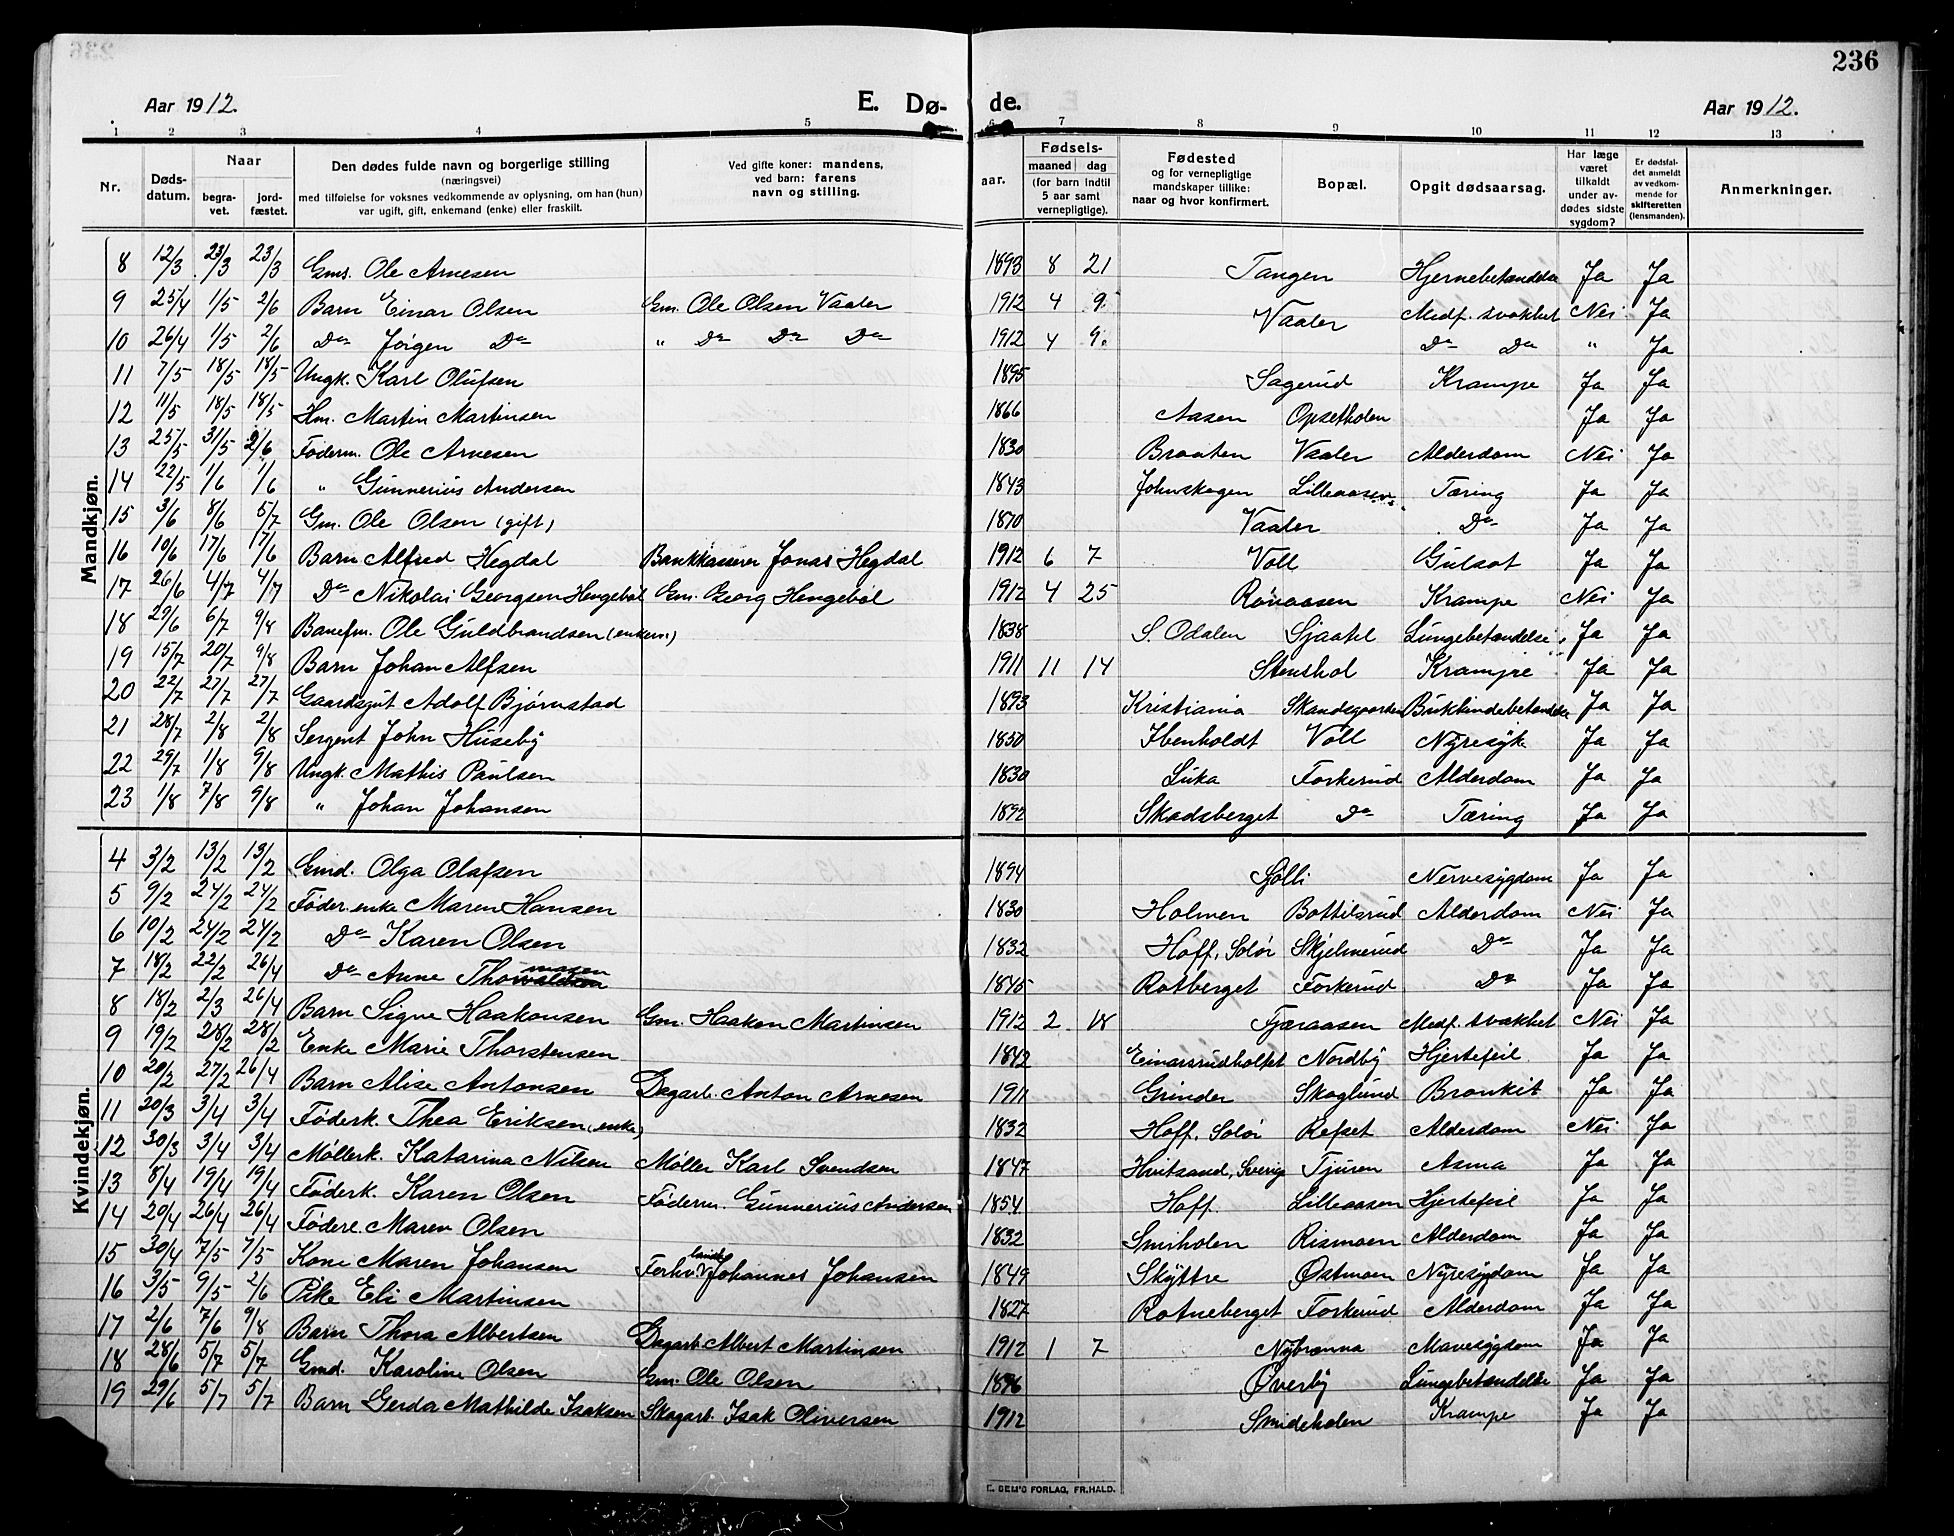 236
Aar 1912. E. Dø- de. Aar 1912.
1 2 3 4 5 6 7 8 9 10 11 12 13
Nr. Dødsdatum. Naar begravet. jordfæstet. Den dødes fulde navn og borgerlige stilling (næringsvei) med tilføielse for voksnes vedkommende av oplysning, om han (hun) var ugift, gift, enkemand (enke) eller fraskilt. Ved gifte koner: mandens, ved barn: farens navn og stilling. aar. Fødsels- maaned dag (for barn indtil 5 aar samt vernepligtige). Fødested og for vernepligtige mandskaper tillike: naar og hvor konfirmert. Bopæl. Opgit dødsaarsag. Har læge været tilkaldt under avdødes sidste sygdom? Er dødsfaldet anmeldt av vedkommende for skifteretten (lensmanden). Anmerkninger.
Mandkjøn.
8 12/3 23/3 23/3 Gms. Ole Arnesen 1893 8 21 Tangen Hjernebetændelse Ja Ja
9 25/4 1/5 2/6 Barn Einar Olsen Gm. Ole Olsen Vaaler 1912 4 9. Vaaler Medf. svakhet Nei Ja
10 26/4 1/5 2/6 Do Jørgen Do " Do Do Do 1912 4 9. Do Do " Ja
11 7/5 18/5 18/5 Ungk. Karl Olufsen 1895 Sagerud Krampe Ja Ja
12 11/5 18/5 18/5 Hm. Martin Martinsen 1866 Aasen Opsetholen Ja Ja
13 25/5 31/5 2/6 Føderm. Ole Arnesen 1830 Braaten Vaaler Alderdom Nei Ja
14 22/5 1/6 1/6 " Gunnerius Andersen 1843 Johnskogen Lilleaasen Tæring Ja Ja
15 3/6 8/6 5/7 Gm. Ole Olsen (gift) 1870 Vaaler Do Ja Ja
16 10/6 17/6 17/6 Barn Alfred Hegdal Bankkasserer Jonas Hegdal 1912 6 7 Voll Gulsot Ja Ja
17 26/6 4/7 4/7 Do Nikolai Georgsen Hengebøl Gm. Georg Hengebøl 1912 4 25 Rønaasen Krampe Nei Ja
18 29/6 6/7 9/8 Banefm. Ole Guldbrandsen (enkem) 1838 S. Odalen Sjaatel Lungebetændelse Ja Ja
19 15/7 20/7 9/8 Barn Johan Alfsen 1911 11 14 Stenshol Krampe Ja Ja
20 22/7 27/7 27/7 Gaardsgut Adolf Bjørnstad 1893 Kristiania Skandsgaarden Bukhindebetændelse Ja Ja
21 28/7 2/8 2/8 Sergent John Huseby 1850 Ibenholdt Voll Nyresyk Ja Ja
22 29/7 1/8 9/8 Ungk. Mathis Paulsen 1830 Luka Forkerud Alderdom Ja Ja
23 1/8 7/8 9/8 " Johan Johansen 1892 Skadsberget Do Tæring Ja Ja
Kvindekjøn.
4 3/2 13/2 13/2 Gmd. Olga Olafsen 1894 Sølli Nervesygdom Ja Ja
5 9/2 24/2 24/2 Føder. enke Maren Hansen 1830 Holmen Bottilsrud Alderdom Nei Ja
6 10/2 24/2 24/2 Do Karen Olsen 1832 Hoff, Solør Skjelmerud Do Ja Ja
7 18/2 22/2 26/4 Do Anne Thomasen 1845 Rotberget Forkerud Do Ja Ja
8 18/2 2/3 26/4 Barn Signe Haakonsen Gm. Haakon Martinsen 1912 2 18 Fjæraasen Medf. svakhet Nei Ja
9 19/2 28/2 28/2 Enke Marie Thorstensen 1842 Einarsrudholtet Nordby Hjertefeil Ja Ja
10 20/2 27/2 26/4 Barn Alise Antonsen Dagarb. Anton Arnesen 1911 Grinder Skoglund Bronkit Ja Ja
11 20/3 3/4 3/4 Føderk. Thea Eriksen (enke) 1832 Hoff, Solør Refset Alderdom Nei Ja
12 30/3 3/4 3/4 Møllerk. Katarina Nilsen Møller Karl Svendsen 1847 Hvitsand, Sverig Tjuren Asma Ja Ja
13 8/4 19/4 19/4 Føderk. Karen Olsen Føderm. Gunnerius Andersen 1854 Hoff. Lilleaasen Hjertefeil Ja Ja
14 20/4 26/4 26/4 Føder e. Maren Olsen 1832 Smiholen Rismoen Alderdom Ja Ja
15 30/4 7/5 7/5 Kone Maren Johansen Forhv. Johannes Johansen 1849 Skyttre Østmoen Nyresygdom Ja Ja
16 3/5 9/5 2/6 Pike Eli Martinsen 1827 Rotneberget Forkerud Alderdom Ja Ja
17 2/6 7/6 9/8 Barn Thora Albertsen Dagarb. Albert Martinsen 1912 1 7 Nybrænna Mavesygdom Ja Ja
18 28/6 5/7 5/7 Gmd. Karoline Olsen Gm. Ole Olsen 1896 Øverby Lungebetændelse Ja Ja
19 29/6 5/7 5/7 Barn Gerda Mathilde Isaksen Skogarb. Isak Oliversen 1912 Smideholen Krampe Ja Ja
E. SEM'S FORLAG, FR.HALD.